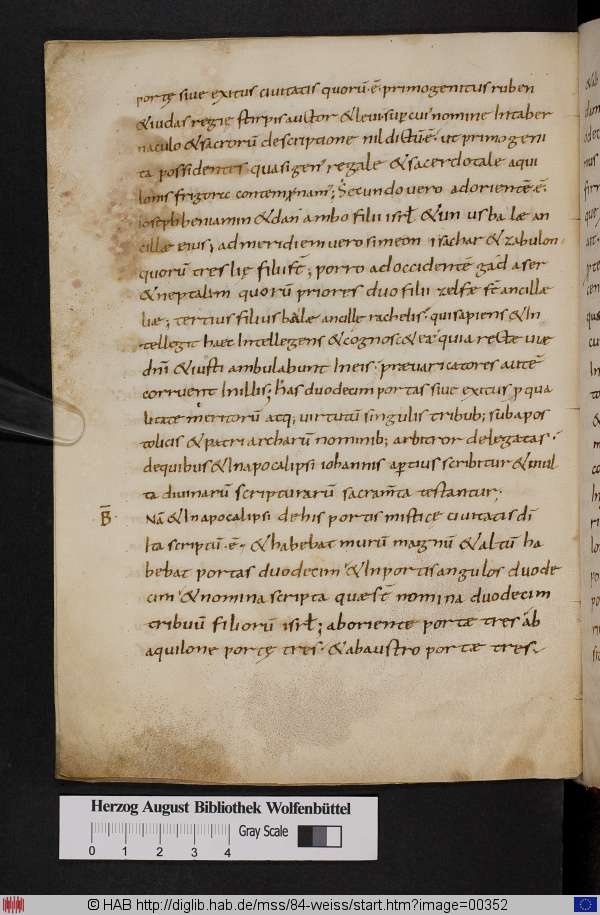 portę sive exitus civitatis quorū · ē · primogenitus ruben
& iudas regie stirpis auctor & levi sup cui nomine In taber
naculo & sacrorū descriptione nil dictū ē · ut primogeni
ta possidentes quasi gen regale & sacerdotale aqui
lonis frigore contempnant; Secundo vero ad orientē ē ·
ioseph beniamin & dan ambo filii isrł & un us balæ an
cillæ eius; ad meridiem vero simeon isachar & zabulon ·
quorū tres lię filii st̄; porro ad occidentē gad aser
& neptalim quorū priores duo filii zelfæ st̄ ancillæ
liæ; tertius filius balæ ancille rachelis · qui sapiens & In
tellegit haec Intellegens & cognosc& ea · quia recte viæ
dn̄i & iusti ambulabunt In eis · prævaricatores autē
corruent In illis; has duodecim portas sive exitus p qua
litate meritorū atq; virtutū singulis tribub; sub apos
tolicis & patriarcharū nominib; arbitror delegatas ·
de quibus & In apocalipsi iohannis aptius scribitur & mul
ta divinarū scripturarū sacram̄ta testantur;
B̄ · Nā & In apocalipsi de his portis mistice civitatis dī
Ita scriptū · ē · & habebat murū magnū & altū ha
bebat portas duodecim & In portis angulos duode
cim & nomina scripta quæ st̄ nomina duodecim
tribuū filiorū isrł; ab oriente portæ tres ab
aquilone portę tres · & ab austro portæ tres ·
Herzog August Bibliothek Wolfenbüttel
Gray Scale
0 1 2 3 4
© HAB http://diglib.hab.de/mss/84-weiss/start.htm?image=00352